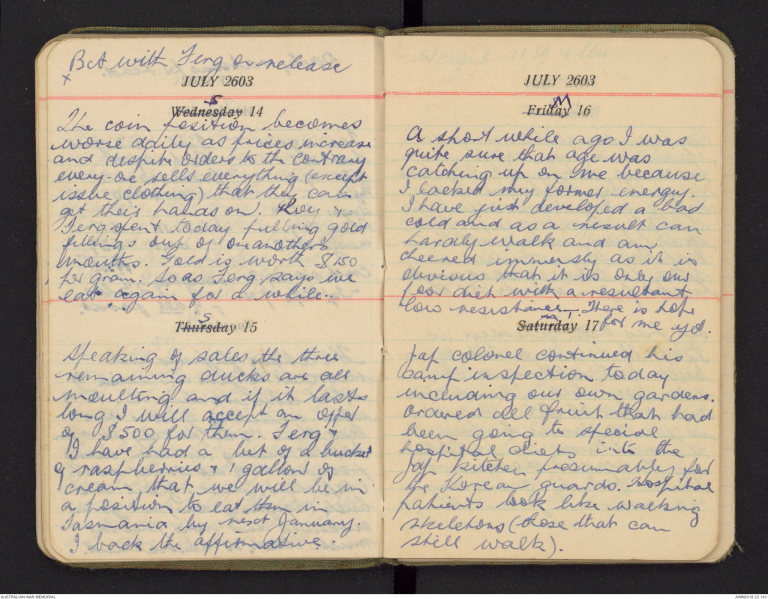 Bet with Ferg on release
x
JULY 2603
S
Wednesday 14
The coin position becomes
worse daily as prices increase
and despite orders to the contrary
every-one sells everything (except
issue clothing) that they can
get their hands on. Roy +
Ferg spent today pulling gold
fillings out of one anothers
mouths. Gold is worth $150
per gram. So as Ferg says we
eat again for a while.
S
Thursday 15
Speaking of sales the three
remaining ducks are all
moulting and if it lasts
long I will accept an offer
of $500 for them. Ferg +
I have had a bet of a bucket
of raspberries + 1 gallon of
cream that we will be in
a position to eat them in
Tasmania by next January.
I back the affirmative.
JULY 2603
M
Friday 16
A short while ago I was
quite sure that age was
catching up on me because
I lacked my former energy.
I have just developed a bad
cold and as a result can
hardly walk and am
cheered immensly as it is
obvious that it is only our
poor diet with a resultant
low resistance. There is hope
for me yet.
Saturday 17
Jap colonel continued his
camp inspection today
including our own gardens.
Ordered all fruit that had
been going to special
hospital diets into the
Jap kitchen presumably for
the Korean guards. Hospital
patients look like walking
skeletons (those that can
still walk).
AUSTRALIAN WAR MEMORIAL